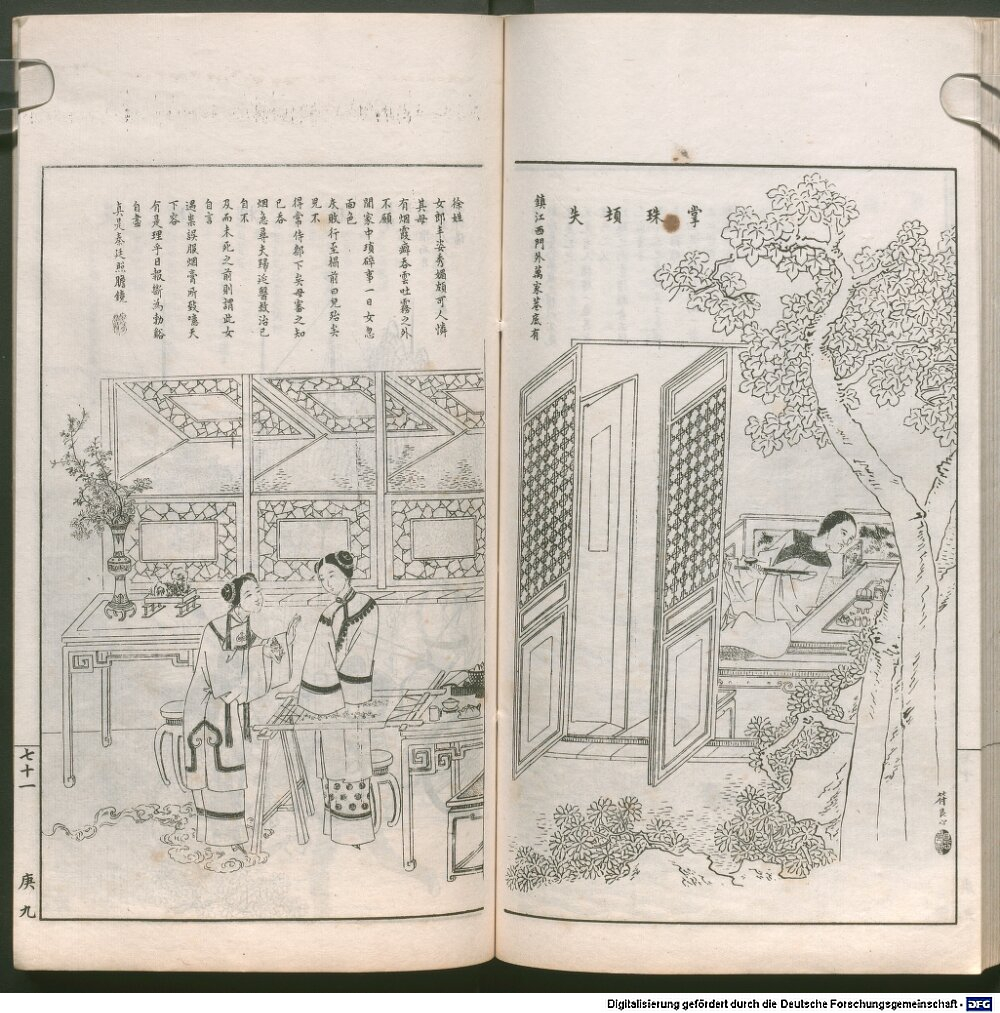 掌珠頓失
鎮江西門外萬家巷底有
徐姓
女郎丰姿秀媚頗可人憐
其母
有烟霞癖吞雲吐霧之外
不顧
閒家中瑣碎事一日女忽
面色
灰敗行至榻前曰兒殆矣
兒不
得常侍郝下矣母審之知
已吞
烟急尋夫歸延醫救治已
自不
及而未死之前則謂此女
自言
遇祟誤服烟膏所致噫天
下容
有是理乎日報斷為勃谿
自盡
真是秦廷照膽鏡
符良心
七十一
庚九
Digitalisierung gefördert durch die Deutsche Forschungsgemeinschaft - DFG